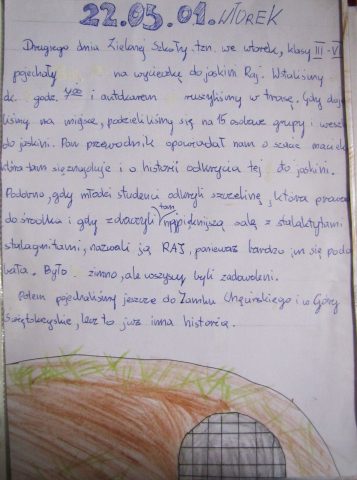 22.03.04. WTOREK
Drugiego dnia Zielonej Szkoły tzn. we wtorek, klasy III - V
pojechały na wycieczkę do jaskini Raj. Wstaliśmy
ok. godz. 7:00 i autokarem ruszyliśmy w trasę. Gdy doje
liśmy na miejsce, podzieliliśmy się na 15 osobowe grupy i wesz
do jaskini. Pan przewodnik opowiadał nam o szacie naciek
która tam się znajduje i o historii odkrycia tej to jaskini.
Podobno, gdy młodzi studenci odkryli szczelinę, która prowa
do środka i gdy zobaczyli tam najpiękniejszą salę z stalaktytami
stalagmitami, nazwali ją RAJ, ponieważ bardzo im się podo
bała. Było zimno, ale wszyscy byli zadowoleni.
Potem pojechaliśmy jeszcze do Zamku Chęcińskiego i w Góry
Świętokrzyskie, lecz to już inna historia.